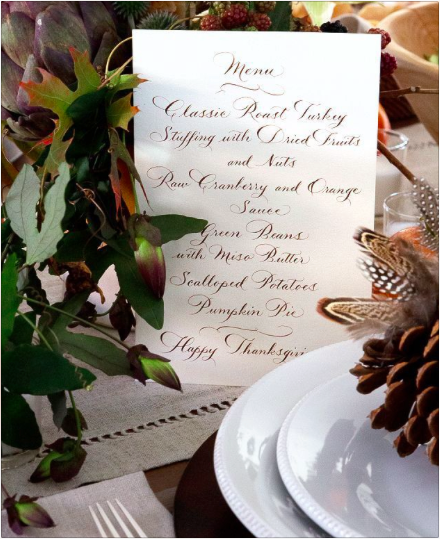 Menu
Classic Roast Turkey
Stuffing with Dried Fruits
and Nuts
Raw Cranberry and Orange
Sauce
Green Beans
with Miso Butter
Scalloped Potatoes
Pumpkin Pie
Happy Thanksgivi